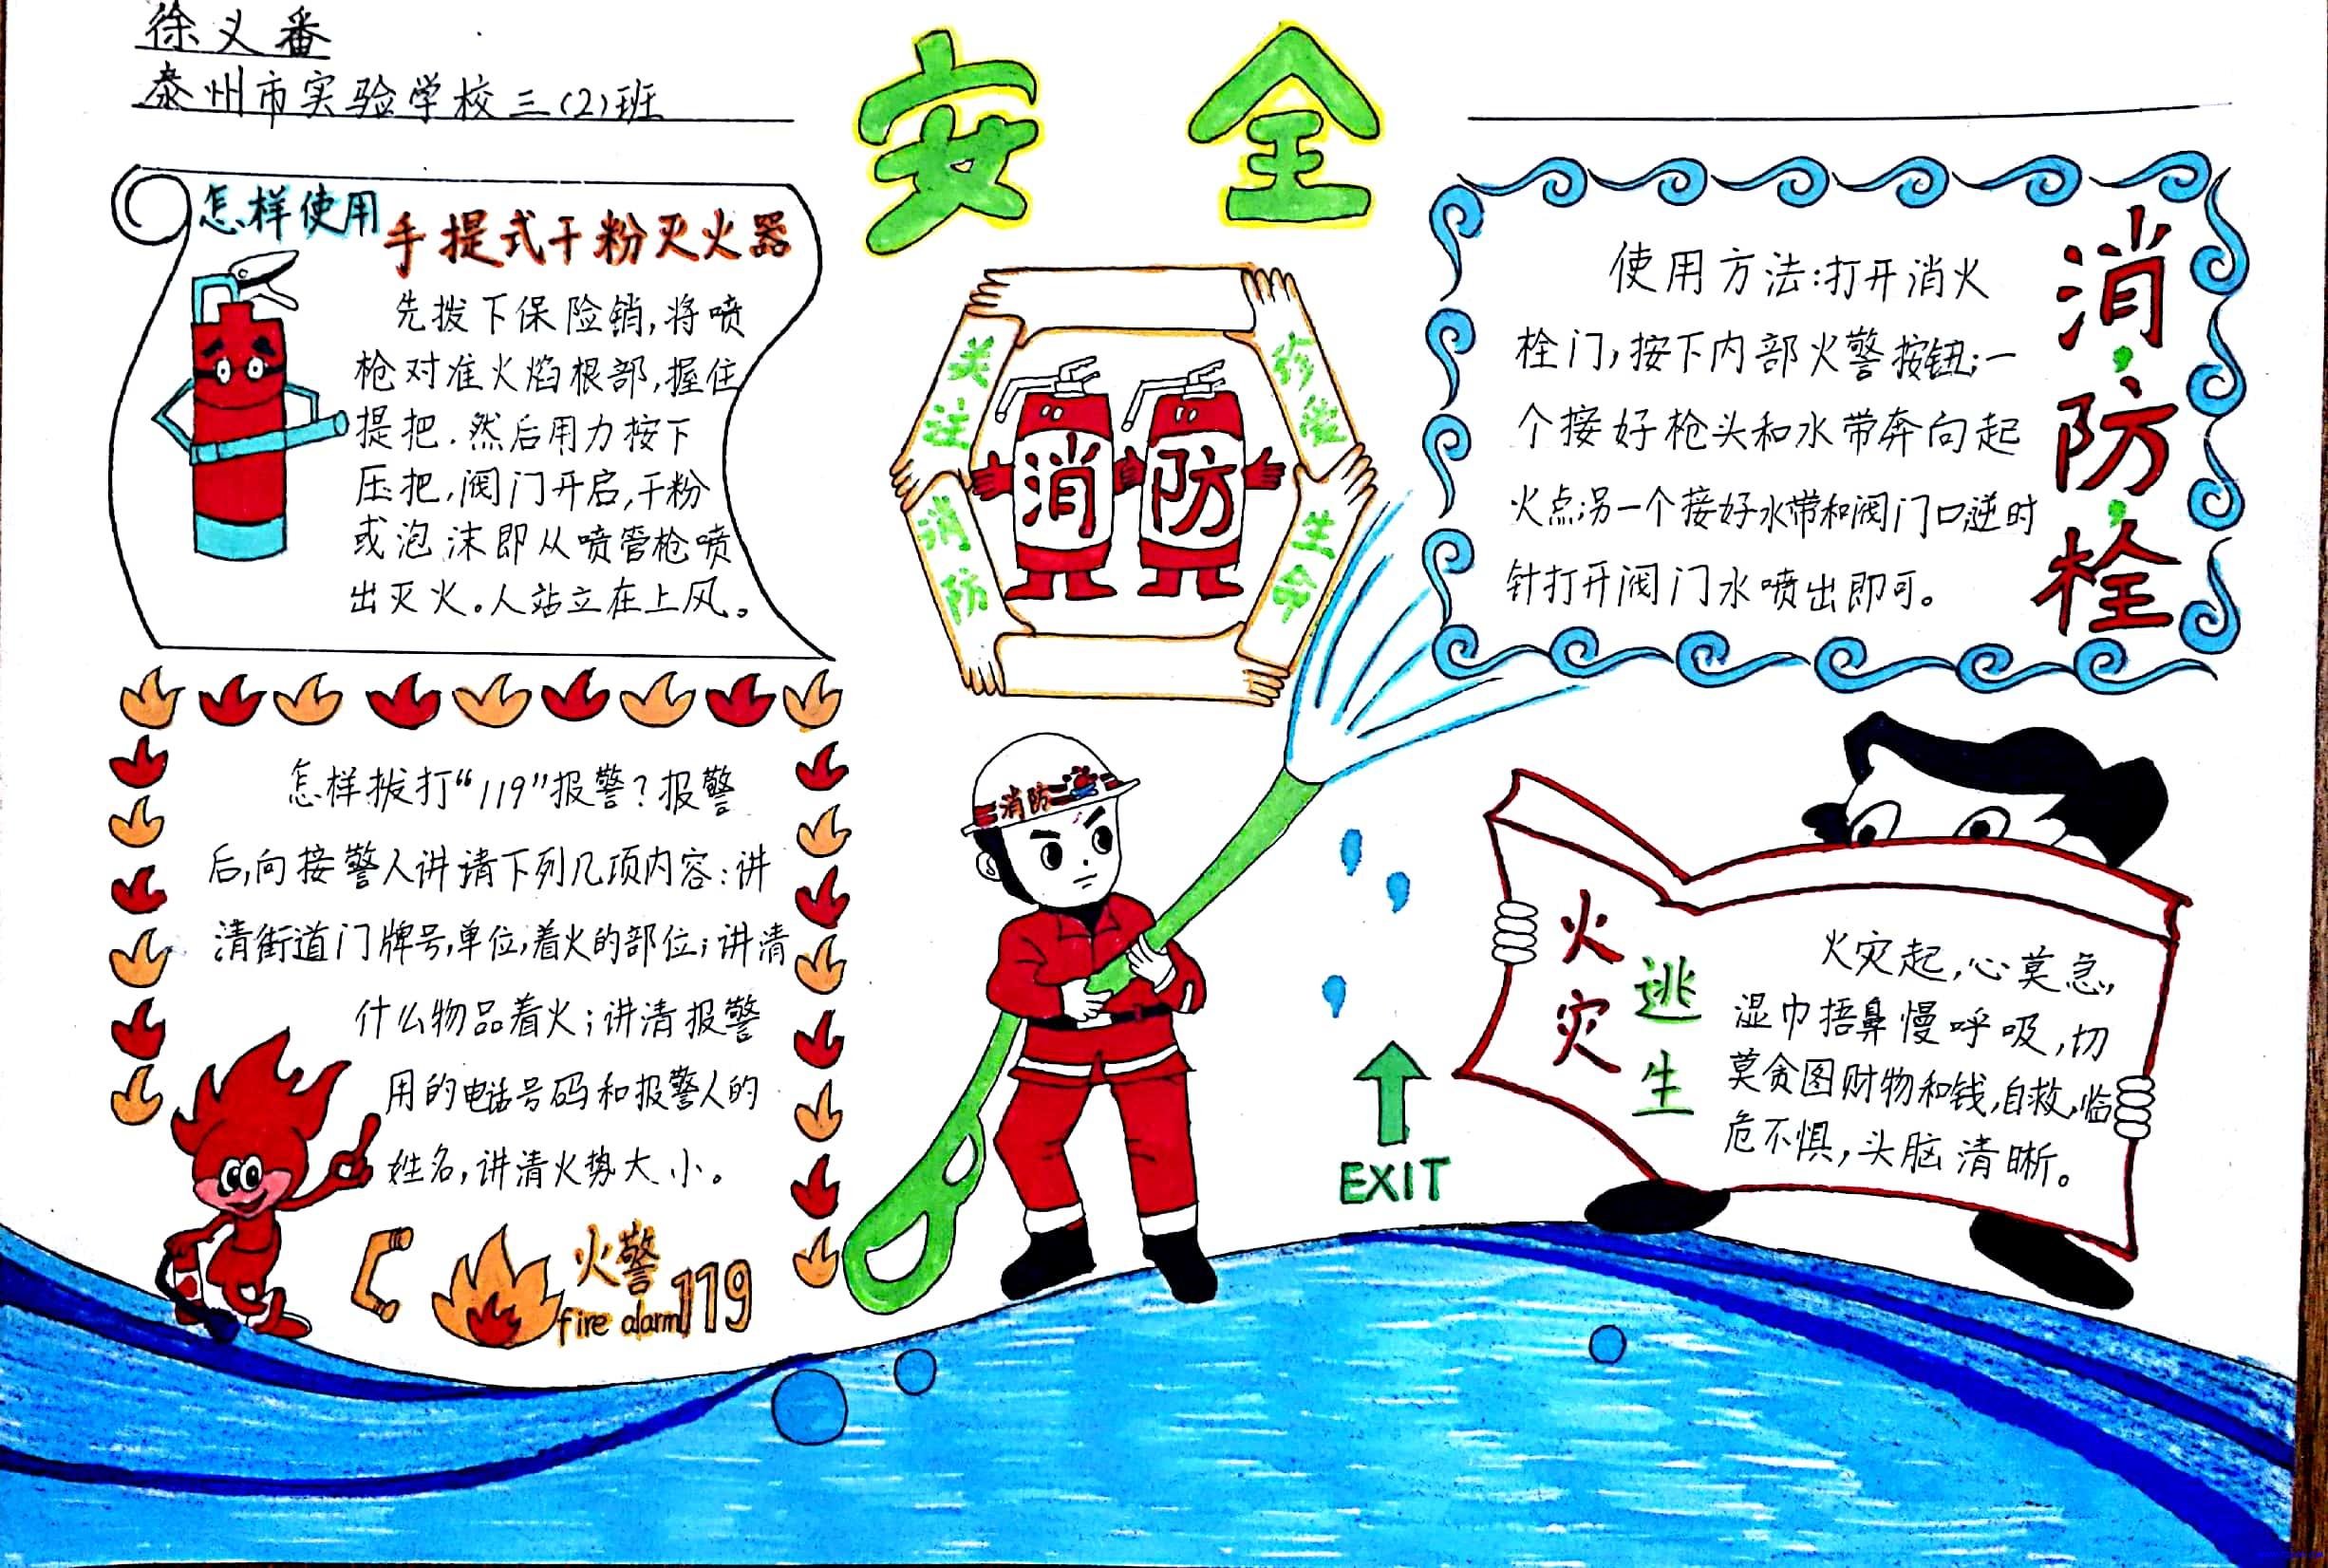 徐义番
泰州市实验学校三(2)班
安全
怎样使用
手提式干粉灭火器
先拨下保险销,将喷
枪对准火焰根部,握住
提把.然后用力按下
压把,阀门开启,干粉
或泡沫即从喷管枪喷
出灭火。人站立在上风。
关注
消防
珍爱
生命
消防
使用方法:打开消火
栓门,按下内部火警按钮;一
个接好枪头和水带奔向起
火点;另一个接好水带和阀门口逆时
针打开阀门水喷出即可。
消防栓
怎样拔打“119”报警?报警
后,向接警人讲请下列几项内容:讲
清街道门牌号,单位,着火的部位;讲清
什么物品着火;讲清报警
用的电话号码和报警人的
姓名,讲清火势大小。
火警
fire alarm119
消防
EXIT
火灾
逃生
火灾起,心莫急,
湿巾捂鼻慢呼吸,切
莫贪图财物和钱,自救,临
危不惧,头脑清晰。